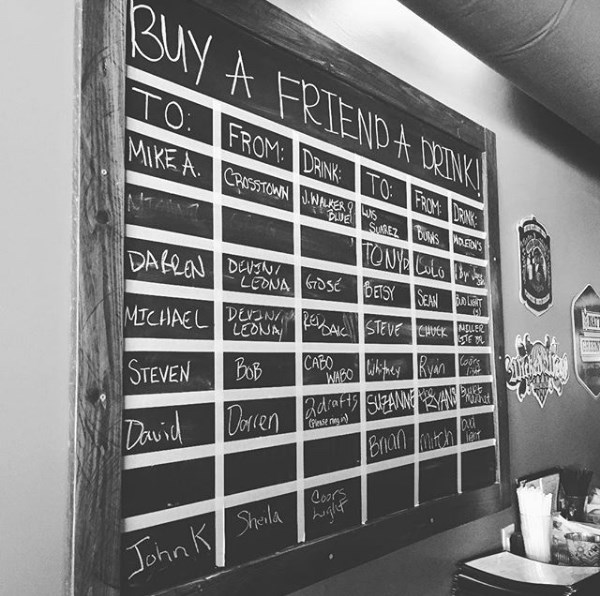 BUY A FRIEND A DRINK!
TO: FROM: DRINK: TO: FROM: DRINK:
MIKE A. CROSSTOWN J. WALKER BLUE! LUIS SUAREZ BURNS
TONY LOLO
DARREN DEVIN/ LEONA GOSE BETSY SEAN BUD LIGHT
MICHAEL DEVIN/ LEONA STEVE CHUCK MILLER LITE
STEVEN BOB CABO WABO Whitney Ryan Coors Light
David Darren 2 drafts SUZANNE RYANS
Brian Mitch Bud Light
John K Sheila Coors Light